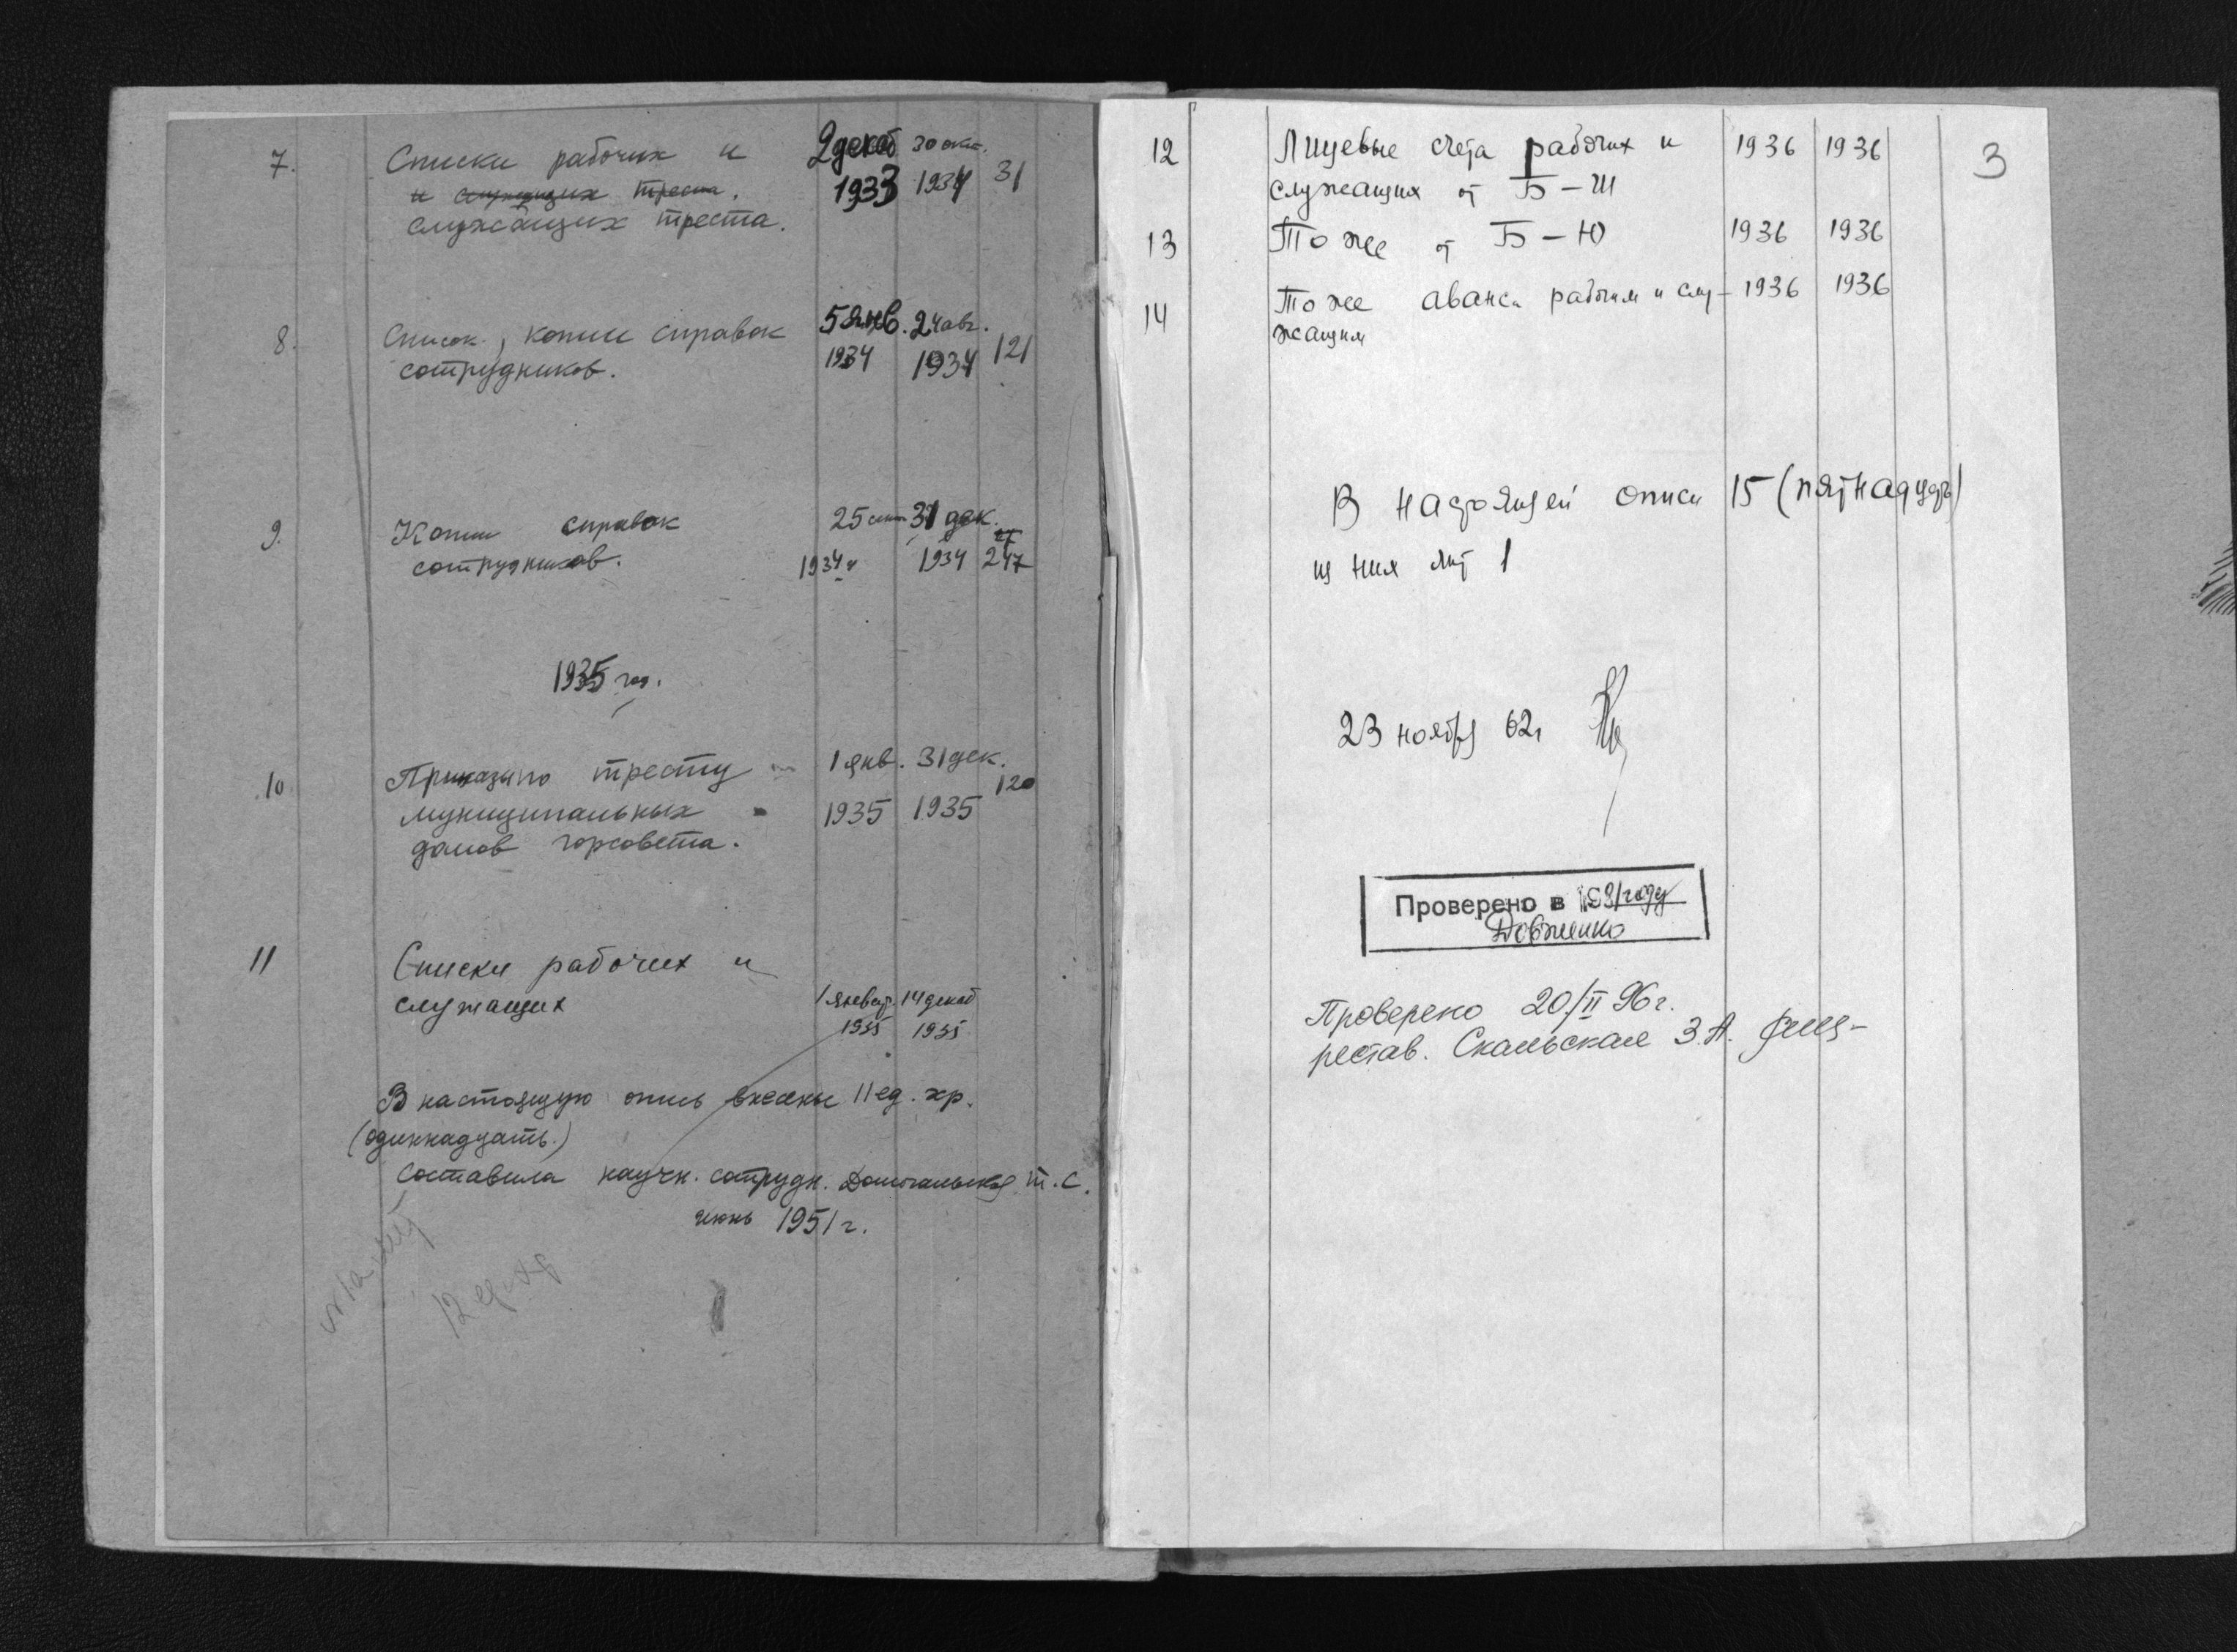 7. Списки рабочих и 2 декаб 30 окт.
и служащих треста. 1933 1934 31
служащих треста.
8. Список, копии справок 5 янв. 24 авг.
сотрудников. 1934 1934 121
9. Копии справок 25 сент 31 дек.
сотрудников. 1934 1934 247
1935 год.
10 Приказы по тресту 1 янв. 31 дек.
муниципальных 1935 1935 120
домов горсовета.
11 Списки рабочих и
служащих 1 январ. 14 декаб
1935 1935
В настоящую опись внесены 11 ед. хр.
(одиннадцать.)
Составила научн. сотрудн. Т.С.
июнь 1951 г.
12 ед. хр
3
12 Лицевые счета рабочих и 1936 1936
служащих от Б – Ш
13 То же от Б – Ю 1936 1936
14 То же аванси рабочим и слу- 1936 1936
жащим
В настоящей описи 15 (пятнадцать)
из них лит 1
23 ноября 62г
Проверено в году
Довженко
Проверено 20/II 96 г.
рестав. Скальская З.А.